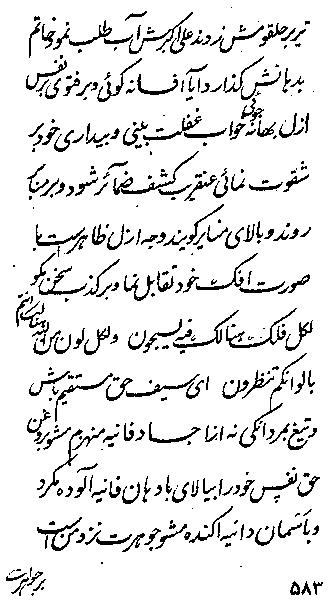 تیر بر حلقومش زدند علی اکبرش آب طلب نمود خاتم
بدهانش گذارد آیا افسانه گوئی و بر فتوی بر نفس
ازل بهانه جوئی خواب غفلت بینی و بیداری خود بر
شقوت نمائی عنقریب کشف ضمائر شود و بر منابر
روند و بالای منابر گویند وجه ازل ظاهر است با
صورت افک خود تقابل نما و بر کذب سخن مگو
لکل فلک هنالک فیه یسبحون ولکل لون من
بالوانکم تنظرون ای سیف حق مستقیم باش
و تیغ بمردانگی نه از اجساد فانیه منهزم مشو بروعن
حق نفس خود را ببالای بادهان فانیه آلوده مگرد
و باسمان دانیه آکنده مشو جوهرت نزد من است
بر جواهرت
۵۸۳